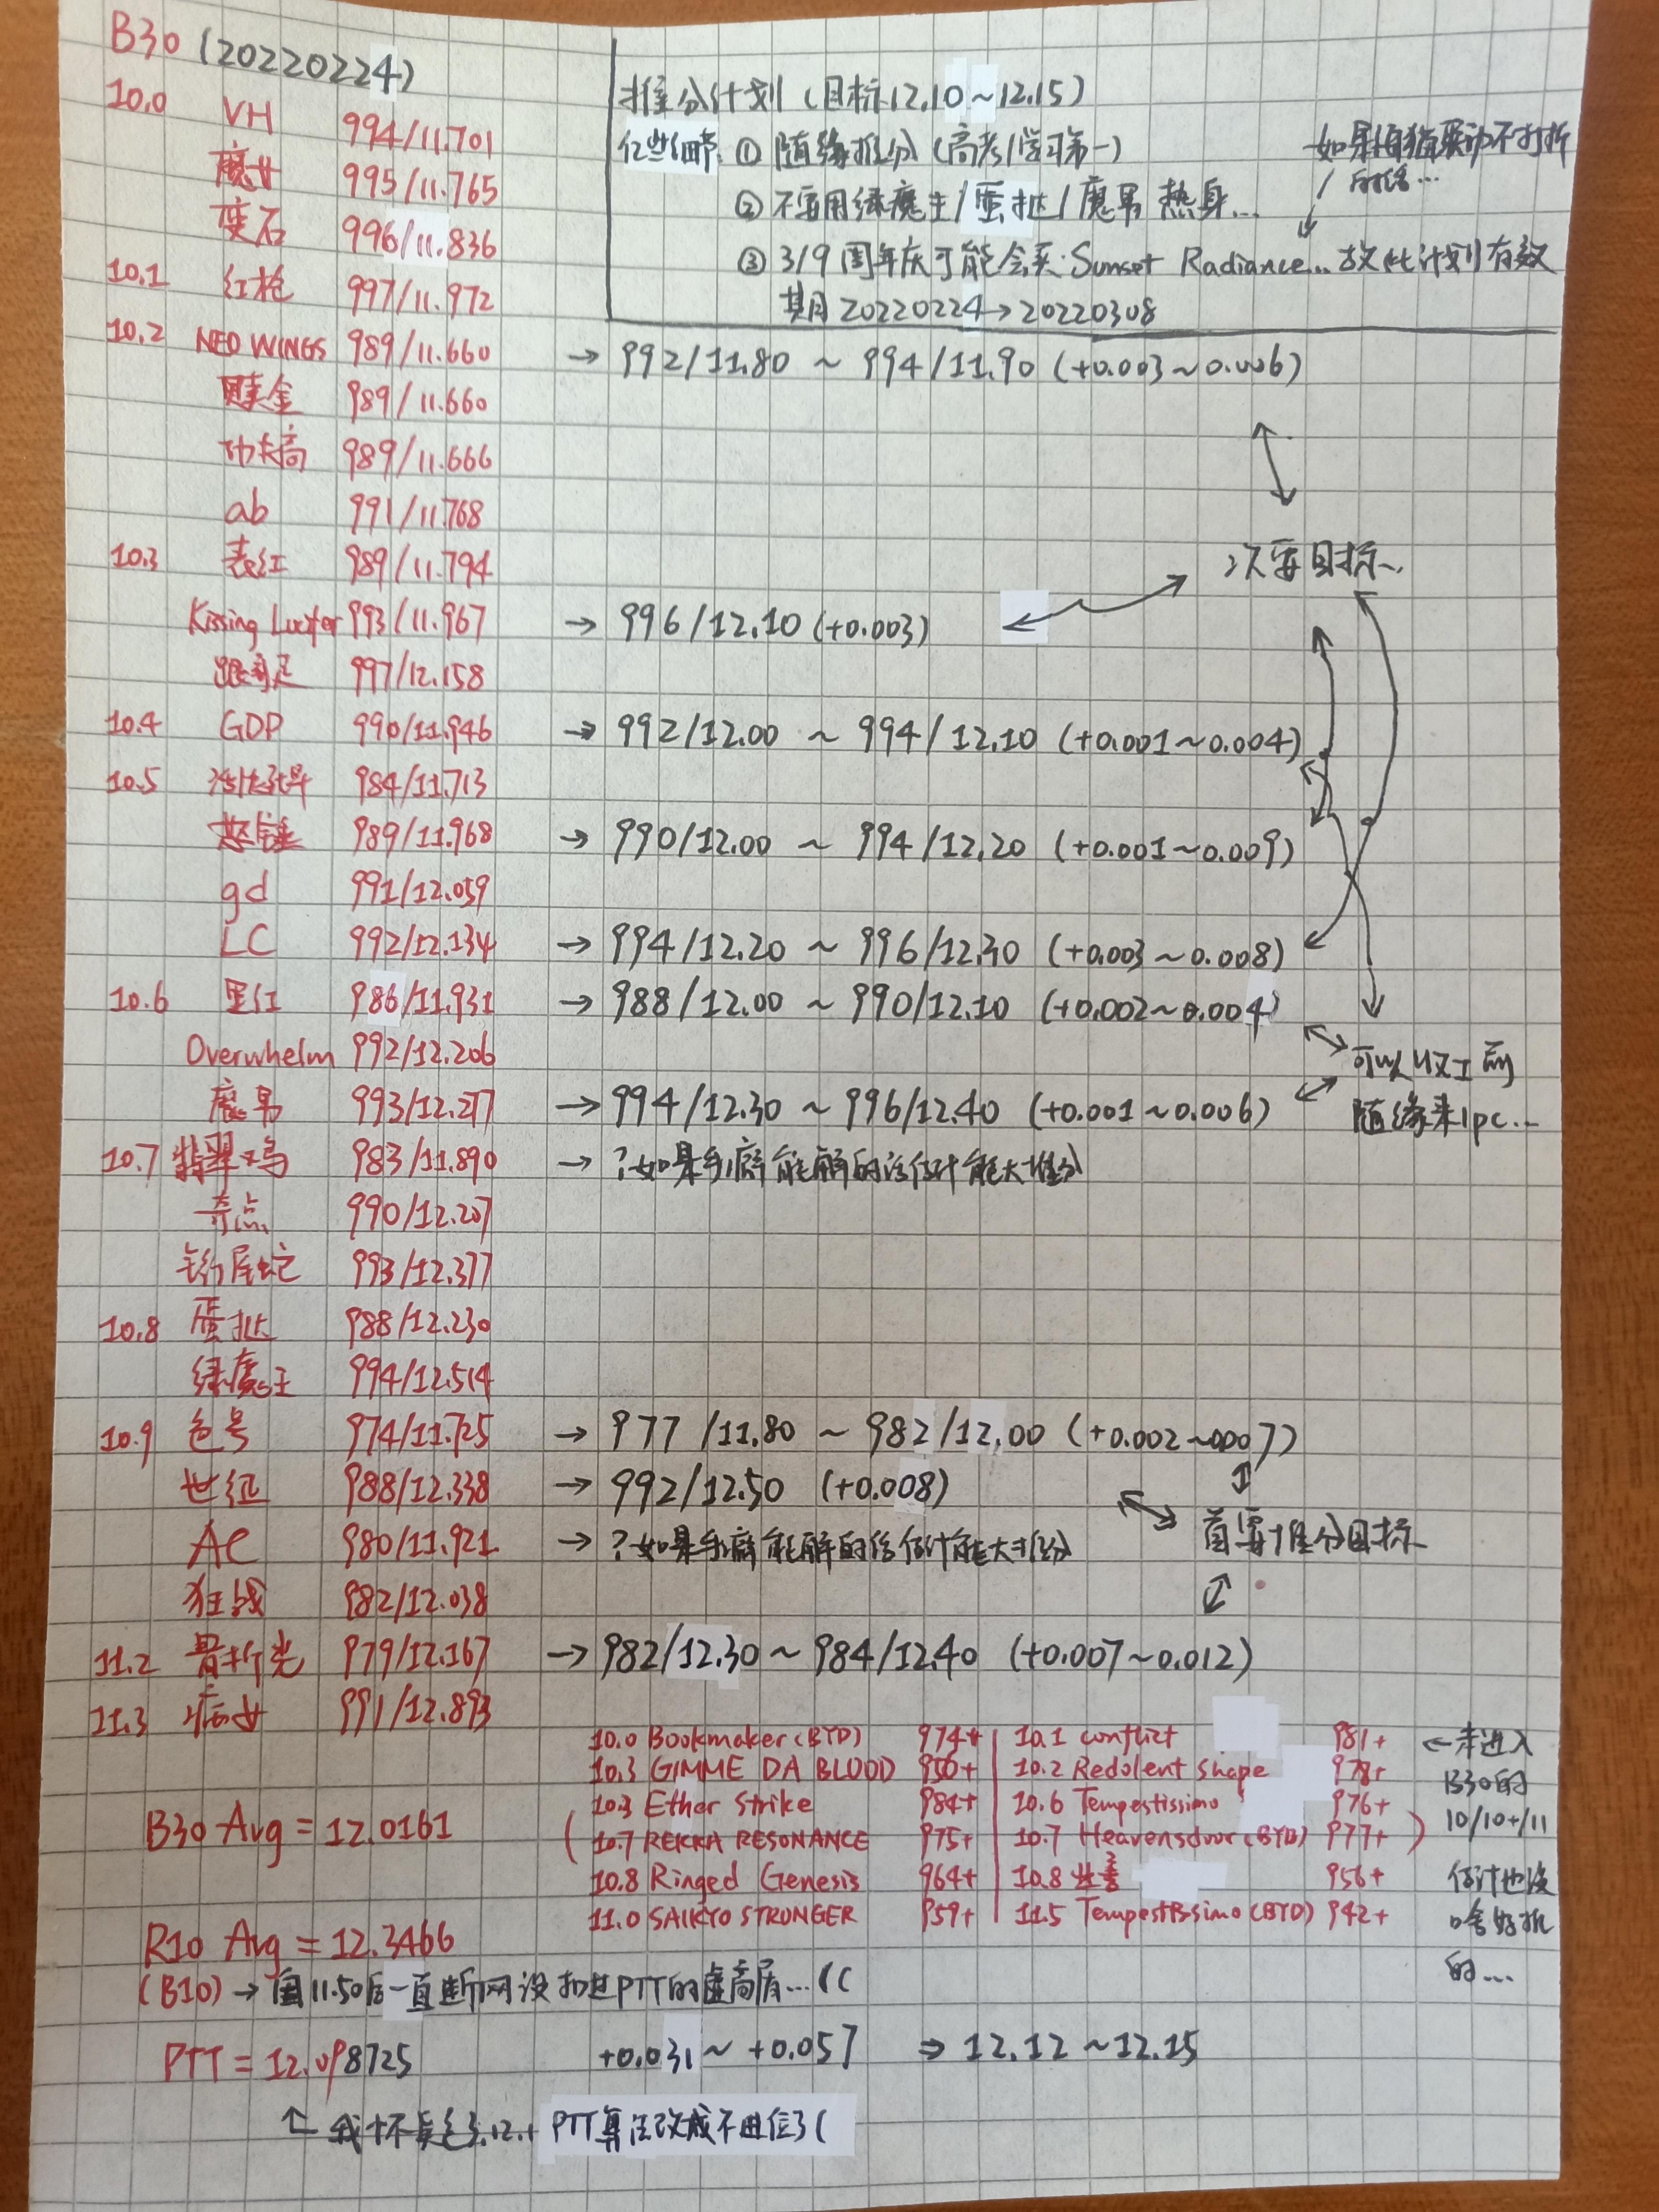 B30 (20220224)
推分计划 (目标12.10~12.15)
亿些细节 ① 随缘推分 (高考/学习第一)
② 不要用绿魔王/蛋挞/魔男 热身...
③ 3/9 周年庆可能会买 Sunset Radiance... 故此计划有效
期 20220224→20220308
如果 联动不打折
的话...
10.0 VH 994/11.701
魔女 995/11.765
变石 996/11.836
10.1 红枪 997/11.972
10.2 NEO WINGS 989/11.660 → 992/11.80 ~ 994/11.90 (+0.003~0.006)
赎金 989/11.660
功夫高 989/11.666
ab 991/11.768
10.3 表红 989/11.794
次要目标...
Kissing Lucifer 993/11.967 → 996/12.10 (+0.003)
997/12.158
10.4 GDP 990/11.946 → 992/12.00 ~ 994/12.10 (+0.001~0.004)
10.5 984/11.713
989/11.968 → 990/12.00 ~ 994/12.20 (+0.001~0.009)
gd 991/12.059
LC 992/12.134 → 994/12.20 ~ 996/12.30 (+0.003~0.008)
10.6 里红 986/11.931 → 988/12.00 ~ 990/12.10 (+0.002~0.004)
Overwhelm 992/12.206
可以收工前
魔男 993/12.277 → 994/12.30 ~ 996/12.40 (+0.001~0.006)
随缘来1pc...
10.7 翡翠鸡 983/11.890 → ?如果手癖能解的话估计能大推分
奇点 990/12.207
响尾蛇 993/12.377
10.8 蛋挞 988/12.230
绿魔王 994/12.514
10.9 色号 974/11.725 → 977/11.80 ~ 982/12.00 (+0.002~0.007)
世纪 988/12.338 → 992/12.50 (+0.008)
首要推分目标
AE 980/11.921 → ?如果手癖能解的话估计能大推分
狂战 982/12.038
11.2 骨折光 979/12.167 → 982/12.30 ~ 984/12.40 (+0.007~0.012)
11.3 病女 991/12.893
10.0 Bookmaker (BYD) 974+ | 10.1 conflict 981+
10.3 GIMME DA BLOOD 950+ | 10.2 Redolent Shape 978+
10.3 Ether Strike 984+ | 10.6 Tempestissimo 976+
10.7 REKKA RESONANCE 975+ | 10.7 Heavensdoor (BYD) 977+
10.8 Ringed Genesis 964+ | 10.8 956+
11.0 SAIKYO STRONGER 959+ | 11.5 Tempestissimo (BYD) 942+
←未进入
B30的
10/10+/11
估计也没
啥好推
的...
B30 Avg = 12.0161
R10 Avg = 12.3466
(B10) → 自11.50后一直断网没 PTT的虚高屑...((
PTT = 12.098725 +0.031 ~ +0.057 ⇒ 12.12 ~ 12.15
↑ 我怀疑 PTT算法改成不进位了(